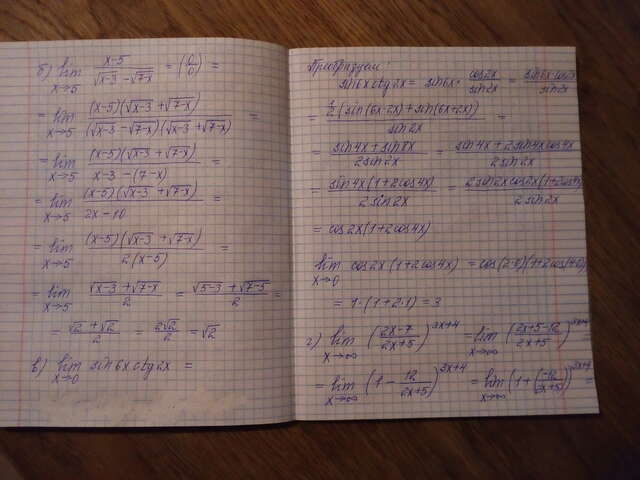 б) lim x→5 (x-5)/(√x-3 - √7-x) = (0/0) =
= lim x→5 (x-5)(√x-3 + √7-x)/((√x-3 - √7-x)(√x-3 + √7-x)) =
= lim x→5 (x-5)(√x-3 + √7-x)/(x-3-(7-x)) =
= lim x→5 (x-5)(√x-3 + √7-x)/(2x-10) =
= lim x→5 (x-5)(√x-3 + √7-x)/(2(x-5)) =
= lim x→5 (√x-3 + √7-x)/2 = (√5-3 + √7-5)/2 =
= (√2 + √2)/2 = 2√2/2 = √2
в) lim x→0 sin6x ctg2x =
Преобразуем:
sin6x ctg2x = sin6x · cos2x/sin2x = sin6x cos2x/sin2x
= ½(sin(6x-2x) + sin(6x+2x))/sin2x =
= (sin4x + sin8x)/2sin2x = (sin4x + 2sin4x cos4x)/2sin2x
= sin4x(1+2cos4x)/2sin2x = 2sin2x cos2x(1+2cos4x)/2sin2x
= cos2x(1+2cos4x)
lim x→0 cos2x(1+2cos4x) = cos(2·0)(1+2cos(4·0)
= 1·(1+2·1) = 3
г) lim x→∞ ((2x-7)/(2x+5))^3x+4 = lim x→∞ ((2x+5-12)/(2x+5))^3x+4
= lim x→∞ (1 - 12/(2x+5))^3x+4 = lim x→∞ (1 + (-12/(2x+5))^3x+4 =